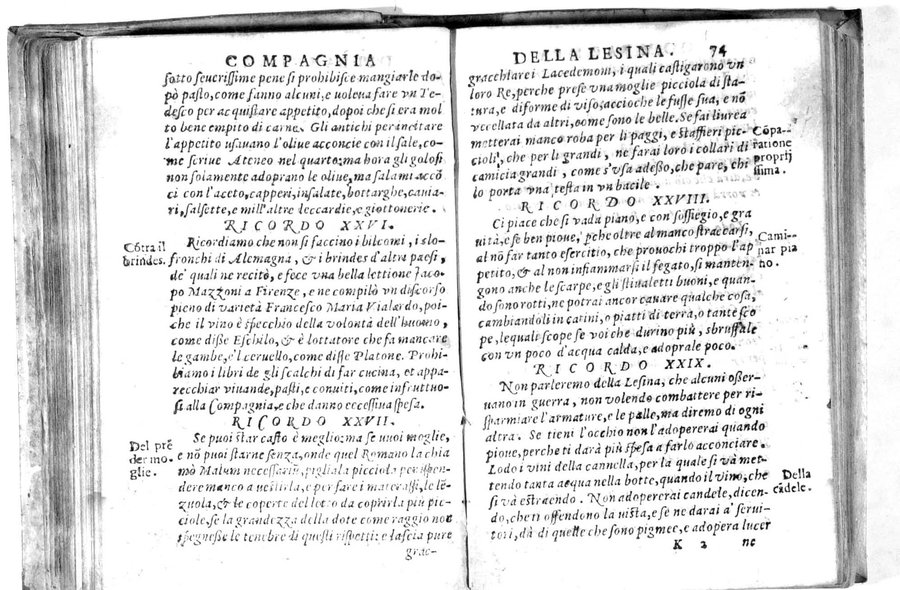 COMPAGNIA
sotto seuerissime pene si prohibisce mangiarle do-
pò pasto, come fanno alcuni, e uoleua fare vn Te-
desco per acquistare appetito, dopoi che si era mol
to bene empito di carne. Gli antichi per incitare
l'appetito usauano l'oliue acconcie con il sale, co-
me scriue Ateneo nel quarto; ma hora gli golosi
non solamente adoprano le oliue, ma salami accõ
ci con l'aceto, capperi, insalate, bottarghe, cauia-
ri, salsette, e mill'altre leccardie, e giottonerie.
RICORDO XXVI.
Cõtra il
brindes.
Ricordiamo che non si faccino i bilcomi, i slo-
fronchi di Alemagna, & i brindes d'altre paesi,
de' quali ne recitò, e fece una bella lettione Jaco-
po Mazzoni a Firenze, e ne compilò vn discorso
pieno di varietà Francesco Maria Vialardo, poi-
che il vino è specchio della volontà dell'huomo,
come disse Eschilo, & è lottatore che fa mancare
le gambe, e'l ceruello, come disse Platone. Prohi-
biamo i libri de gli scalchi di far cucina, et appa-
recchiar viuande, pasti, e conuiti, come infruttuo-
si alla Compagnia, e che danno eccessiua spesa.
RICORDO XXVII.
Del prẽ
der mo-
glie.
Se puoi star casto è meglio: ma se vuoi moglie,
e nõ puoi starne senza, onde quel Romano la chia
mò Malum necessariũ, pigliala picciola per spen-
dere manco a vestirla, e per fare i materassi, le lẽ-
zuola, & le coperte del letto da coprirla più pic-
ciole, se la grandezza della dote come raggio non
spegnesse le tenebre di questi rispetti: e lascia pure
grac-
DELLA LESINA. 74
gracchiare i Lacedemoni, i quali castigarono vn
loro Re, perche prese vna moglie picciola di sta-
tura, e diforme di viso, accioche le fusse sua, e nõ
vccellata da altri, come sono le belle. Se fai liurea
metterai manco roba per li paggi, e staffieri pic-
cioli, che per li grandi, ne farai loro i collari di
camicia grandi, come s'vsa adesso, che pare, chi
lo porta vna testa in vn bacile.
Cõpa-
ratione
proprij
ssima.
RICORDO XXVIII.
Ci piace che si vada piano, e con sossiegio, e gra
uità, e se ben pioue, pche oltre al manco straccarsi,
al nõ far tanto esercitio, che prouochi troppo l'ap
petito, & al non infiammarsi il fegato, si manten-
gono anche le scarpe, e gli stiualetti buoni, e quan-
do sono rotti, ne potrai ancor cauare qualche cosa,
cambiandoli in catini, o piatti di terra, o tante sco
pe, lequali scope se voi che durino più, sbruffale
con vn poco d'acqua calda, e adoprale poco.
Cami-
nar pia
no.
RICORDO XXIX.
Non parleremo della Lesina, che alcuni osser-
uano in guerra, non volendo combattere per ri-
sparmiare l'armature, e le palle, ma diremo di ogni
altra. Se tieni l'occhio non l'adopererai quando
pioue, perche ti darà più spesa a farlo acconciare.
Lodo i vini della cannella, per la quale si và met-
tendo tanta acqua nella botte, quando il vino, che
si và estraendo. Non adopererai candele, dicen-
do, che ti offendono la uista, e se ne darai a' serui-
tori, dà di quelle che sono pigmee, e adopera lucer
Della
cãdele.
K 2 ne